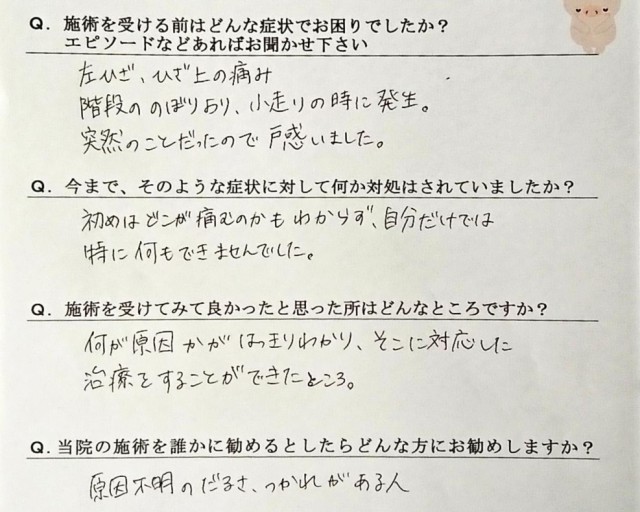 Q．施術を受ける前はどんな症状でお困りでしたか？
エピソードなどあればお聞かせ下さい
左ひざ、ひざ上の痛み
階段ののぼりおり、小走りの時に発生。
突然のことだったので戸惑いました。
Q．今まで、そのような症状に対して何か対処はされていましたか？
初めはどこが痛むのかもわからず、自分だけでは
特に何もできませんでした。
Q．施術を受けてみて良かったと思った所はどんなところですか？
何が原因かがはっきりわかり、そこに対応した
治療をすることができたところ。
Q．当院の施術を誰かに勧めるとしたらどんな方にお勧めしますか？
原因不明のだるさ、つかれがある人